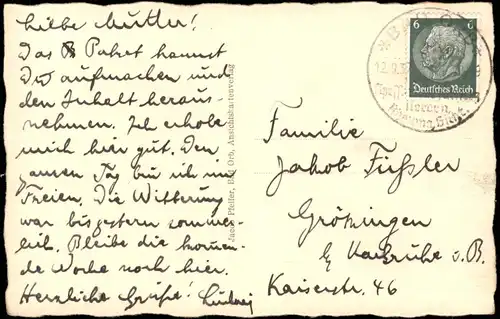 Liebe Mutter!
Das Paket kannst
Du aufmachen und
den Inhalt heraus-
nehmen. Ich erhole
mich hier gut. Den
ganzen Tag bin ich im
Freien. Die Witterung
war bis gestern sommer-
lich. Bleibe die kommen-
de Woche noch hier.
Herzliche Grüße! Ludwig
Jacob Pfeifer, Bad Orb, Ansichtskartenverlag
6 6
Deutsches Reich
12.9.
Nerven
Familie
Jakob Füssler
Grötzingen
b/ Karlsruhe i. B.
Kaiserstr. 46